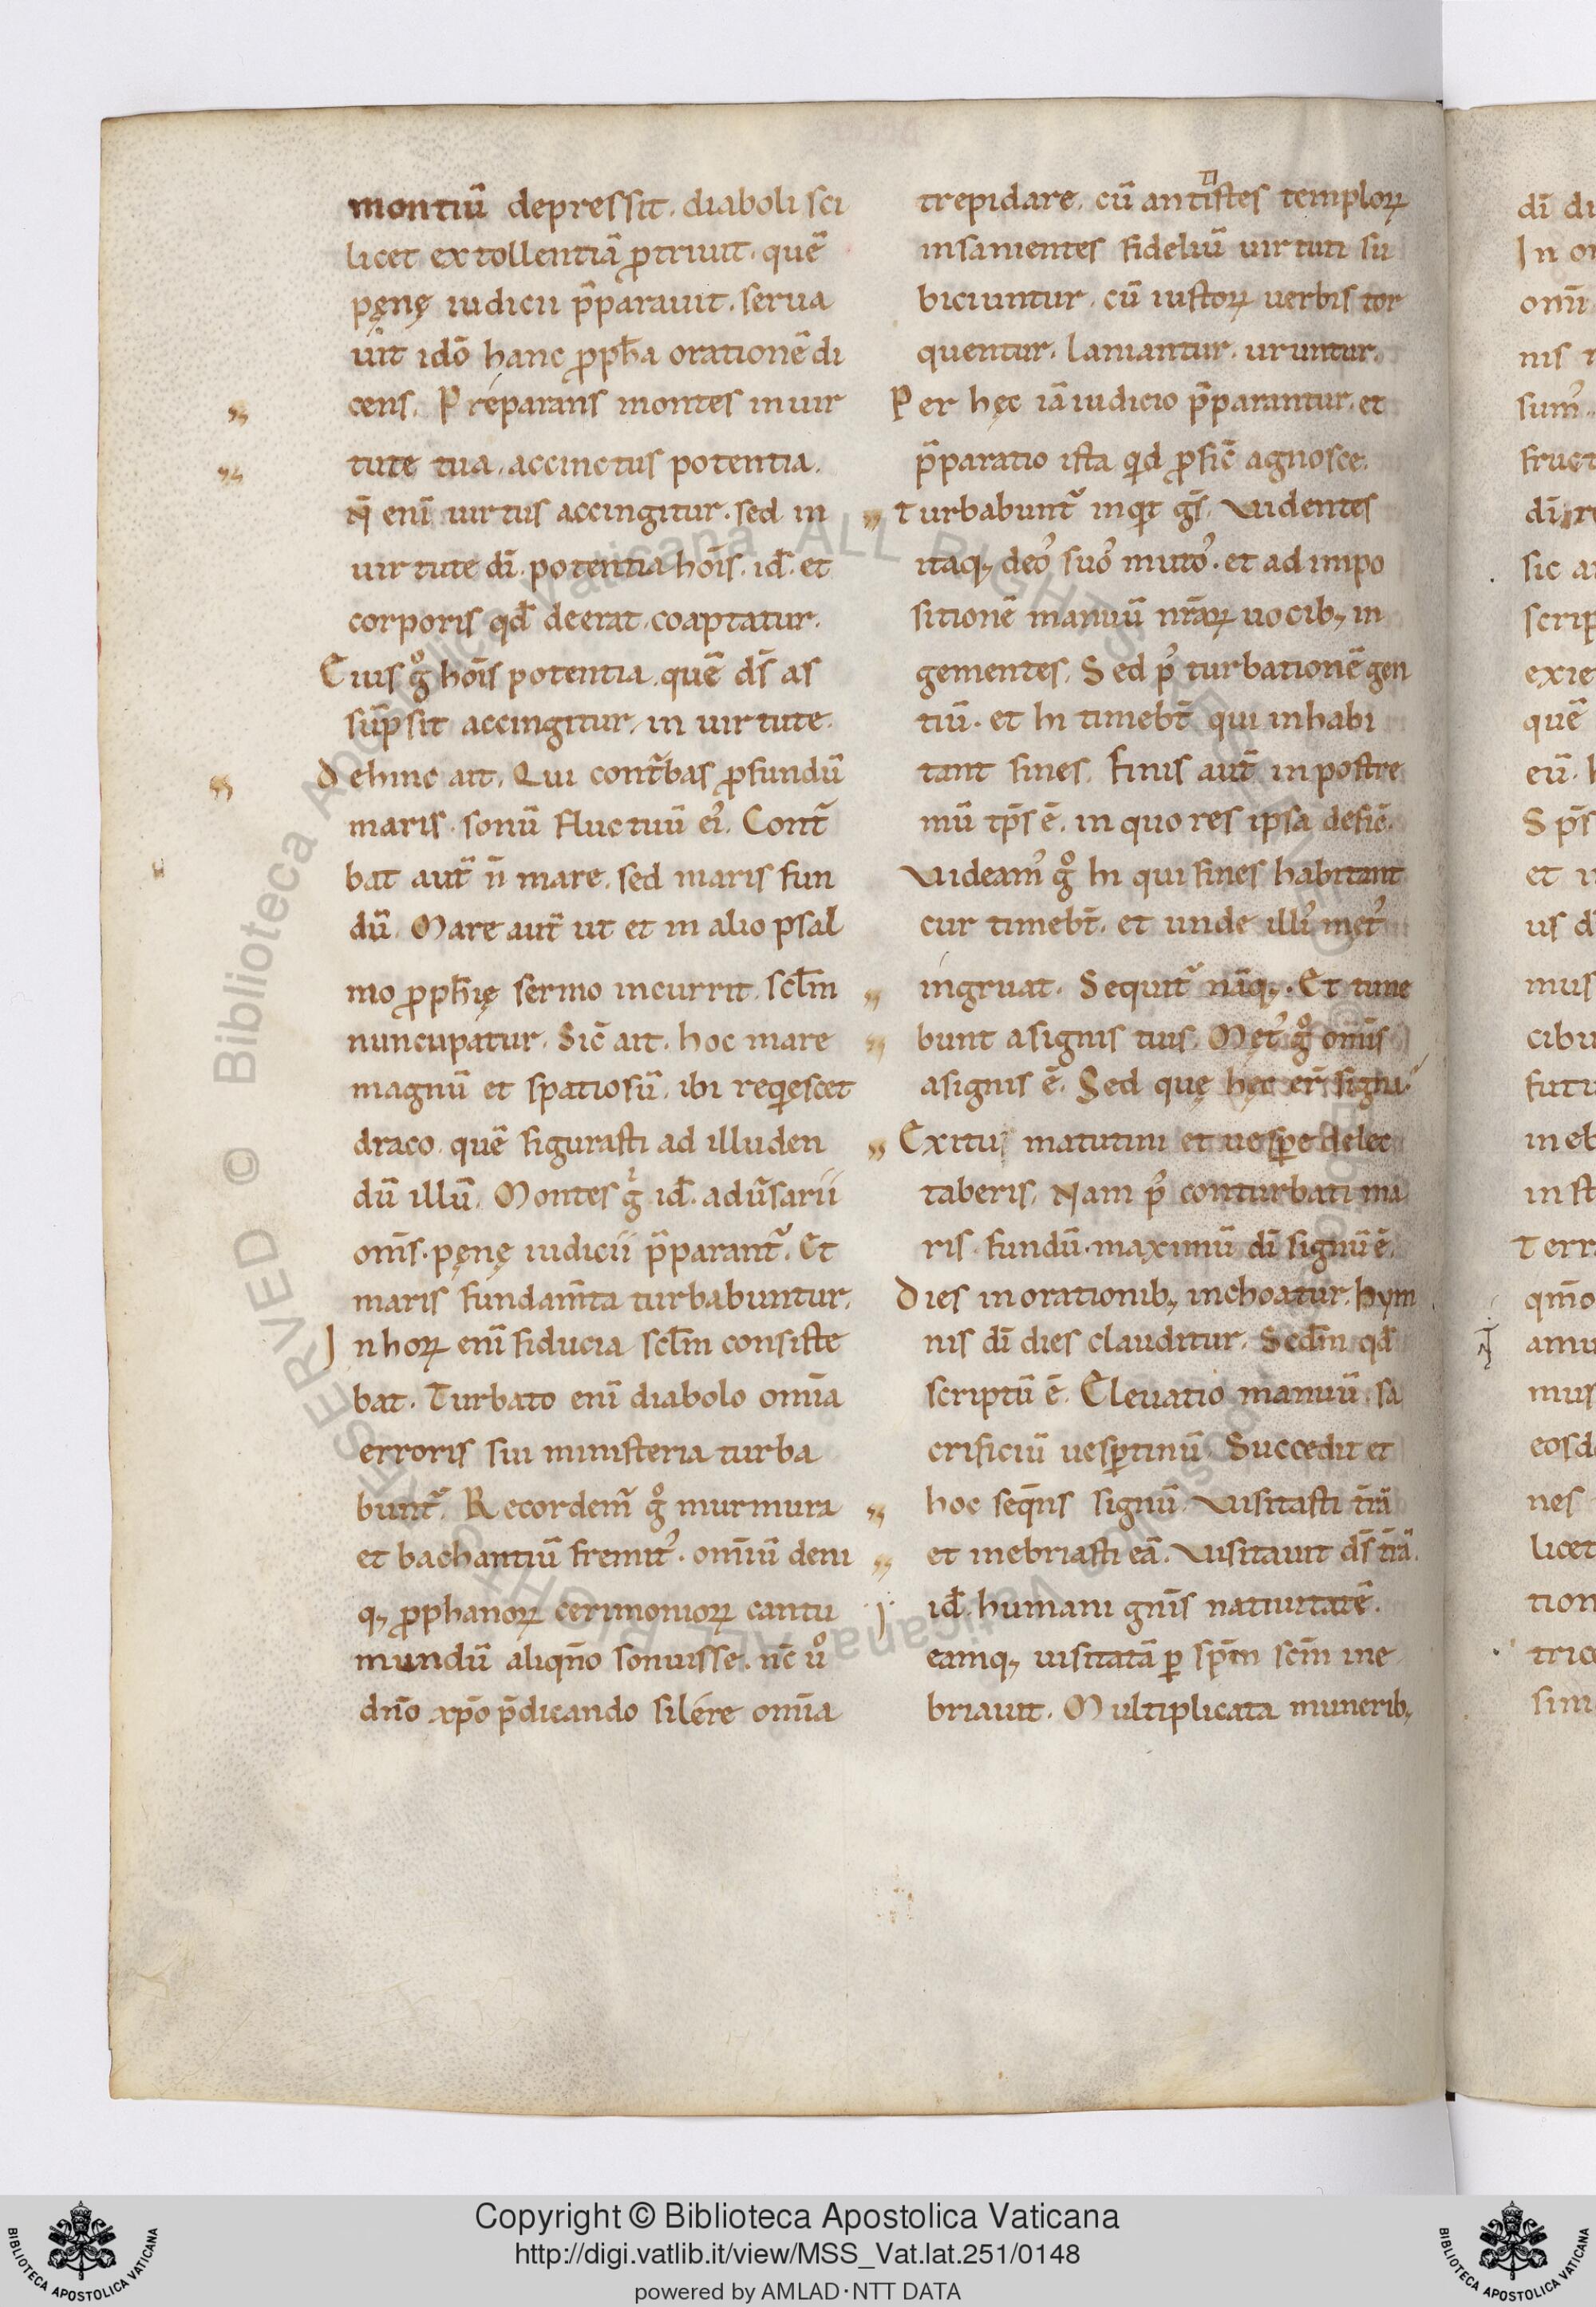 montiū depressit. diaboli sci
licet extollentiā ꝓtriuit. quē
pęnę iudicii p̄parauit. serua
uit idō hanc ꝓpħa orationē di
cens. Preparans montes in uir
tute tua. accinctus potentia.
Ñ eni̅ uirtus accingitur. sed in
uirtute di̅. potentia hoīs. id̅. et
corporis qd̅ deerat. coaptatur.
Eiuˢ gͦ hoīs potentia. quē ds̄ as
sūpsit accingitur. in uirtute.
Dehinc ait. Qui cont̄bas ꝓfundū
maris. sonū fluctuū eiꝰ. Cont̄
bat aut̄ n̄ mare. sed maris fun
dū. Mare aut̄ ut et in alio psal
mo ꝓpħię sermo incurrit. scl̅m
nuncupatur. Sic̄ ait. hoc mare
magnū et spatiosū. ibi reqͥescet
draco. quē figurasti ad illuden
dū illū. Montes gͥ id̅. adūsarii
om̄s. pęnę iudicii p̄parant᷑. Et
maris fundam̄ta turbabuntur.
In horꝝ eni̅ fiducia scl̅m consiste
bat. Turbato eni̅ diabolo omi̅a
erroris sui ministeria turba
bunt᷑. Recordem̄ gͦ murmura
et bachantiū fremitꝰ. omi̅ū deni
qꝫ ꝓphanorꝝ cerimoniorꝝ cantu
mundū aliqn̄o sonuisse. nc̄ uͦ
dn̄o xp̄o p̄dicando silere omi̅a
trepidare. cū antistes templorꝝ
ti
insanientes fideliū uirtuti su
biciuntur. cū iustorꝝ uerbis tor
quentur. laniantur. uruntur.
Per hęc iā iudicio p̄parantur. et
p̄paratio ista qͥd ꝓfic̄ agnosce.
Turbabunt᷑ inqͥt gs̄. Videntes
itaqꝫ deoꝰ suoꝰ mutoꝰ. et ad impo
sitionē manuū nr̄arꝝ uocibꝫ in
gementes. Sed pꝰ turbationē gen
tiū. et hi timebt̄ qui inhabi
tant fines. Finis aut̄ in postre
mū tp̄s ē. in quo res ipsa defic̄.
Videamꝰ gͦ hi qui fines habitant
cur timebt̄. et unde illiꝰ metꝰ
ingruat. Sequit᷑ nāqꝫ. Et time
bunt a signis tuis. Metꝰ gͦ om̄is
a signis ē. Sed quę hęc er̄ signa.
Exitus matutini et uesꝑe delec
taberis. Nam pꝰ conturbati ma
ris fundū. maximū di̅ signū ē.
Dies in orationibꝫ inchoatur. hym
nis di̅ dies clauditur. Scd̅m qd̅
scriptū ē. Eleuatio manuū. sa
crificiū uesꝑtinū. Succedit et
hoc seqn̄s signū. Visitasti tr̄ā
et inebriasti eā. Visitauit ds̄ tr̄ā.
id̅. humani gn̄is natiuitatē.
eamqꝫ uisitatā ꝑ sp̄m sc̄m ine
briauit. Multiplicata muneribꝫ
di̅ di
In o
om̄i
nis
sumꝰ
fruct
di̅
sic a
scrip
exie
quē
eū.
Sp̄s
et
us d
mus
cibu
futu
in eb
in st
Terr
qm̄o
amu
mus
eosd
nes
licet
tion
tric
sim
Copyright © Biblioteca Apostolica Vaticana
http://digi.vatlib.it/view/MSS_Vat.lat.251/0148
powered by AMLAD·NTT DATA
BIBLIOTECA APOSTOLICA VATICANA
BIBLIOTECA APOSTOLICA VATICANA